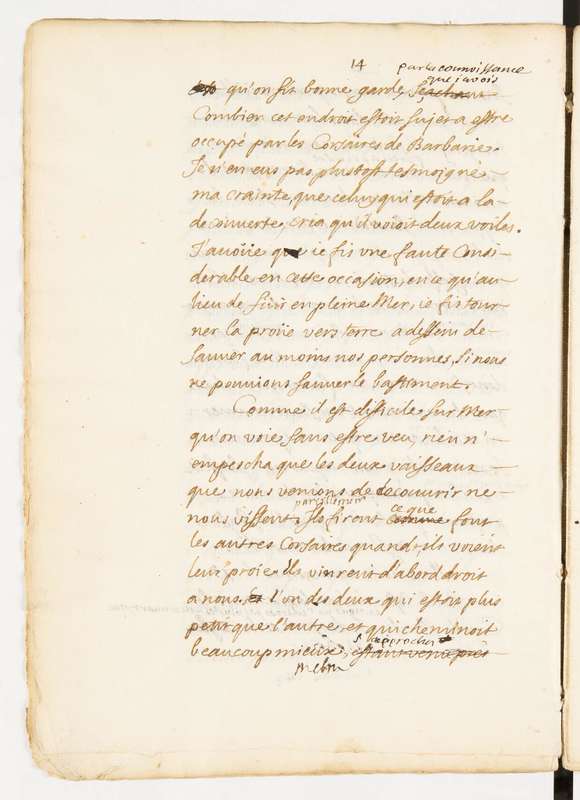 14
par la connoissance
que j'avois
qu'on fit bonne garde, Sçachant
Combien cet endroit estoit sujet a estre
occupé par les Corsaires de Barbarie.
Je n'en eus pas plustost tesmoigné
ma crainte, que celuy qui estoit a la
decouverte, cria qu'il voioit deux voiles.
J'avoüe que ie fis vne faute Consi-
derable en cette occasion, en ce qu'au
lieu de fuir en pleine Mer, ie fis tour-
ner la proüe vers terre a dessein de
sauver au moins nos personnes, si nous
ne pouvions sauver le bastiment.
Comme il est difficile sur Mer
qu'on voie sans estre veu, rien n'
empescha que les deux vaisseaux
que nous venions de decouvrir ne
nous vissent. Ils firent comme font
ce que
les autres Corsaires quand ils voient
leur proie. Ils vinrent d'abord droit
a nous, Et l'on des deux qui estoit plus
petit que l'autre, et qui cheminoit
beaucoup mieux, estant venu pres
s'approcha